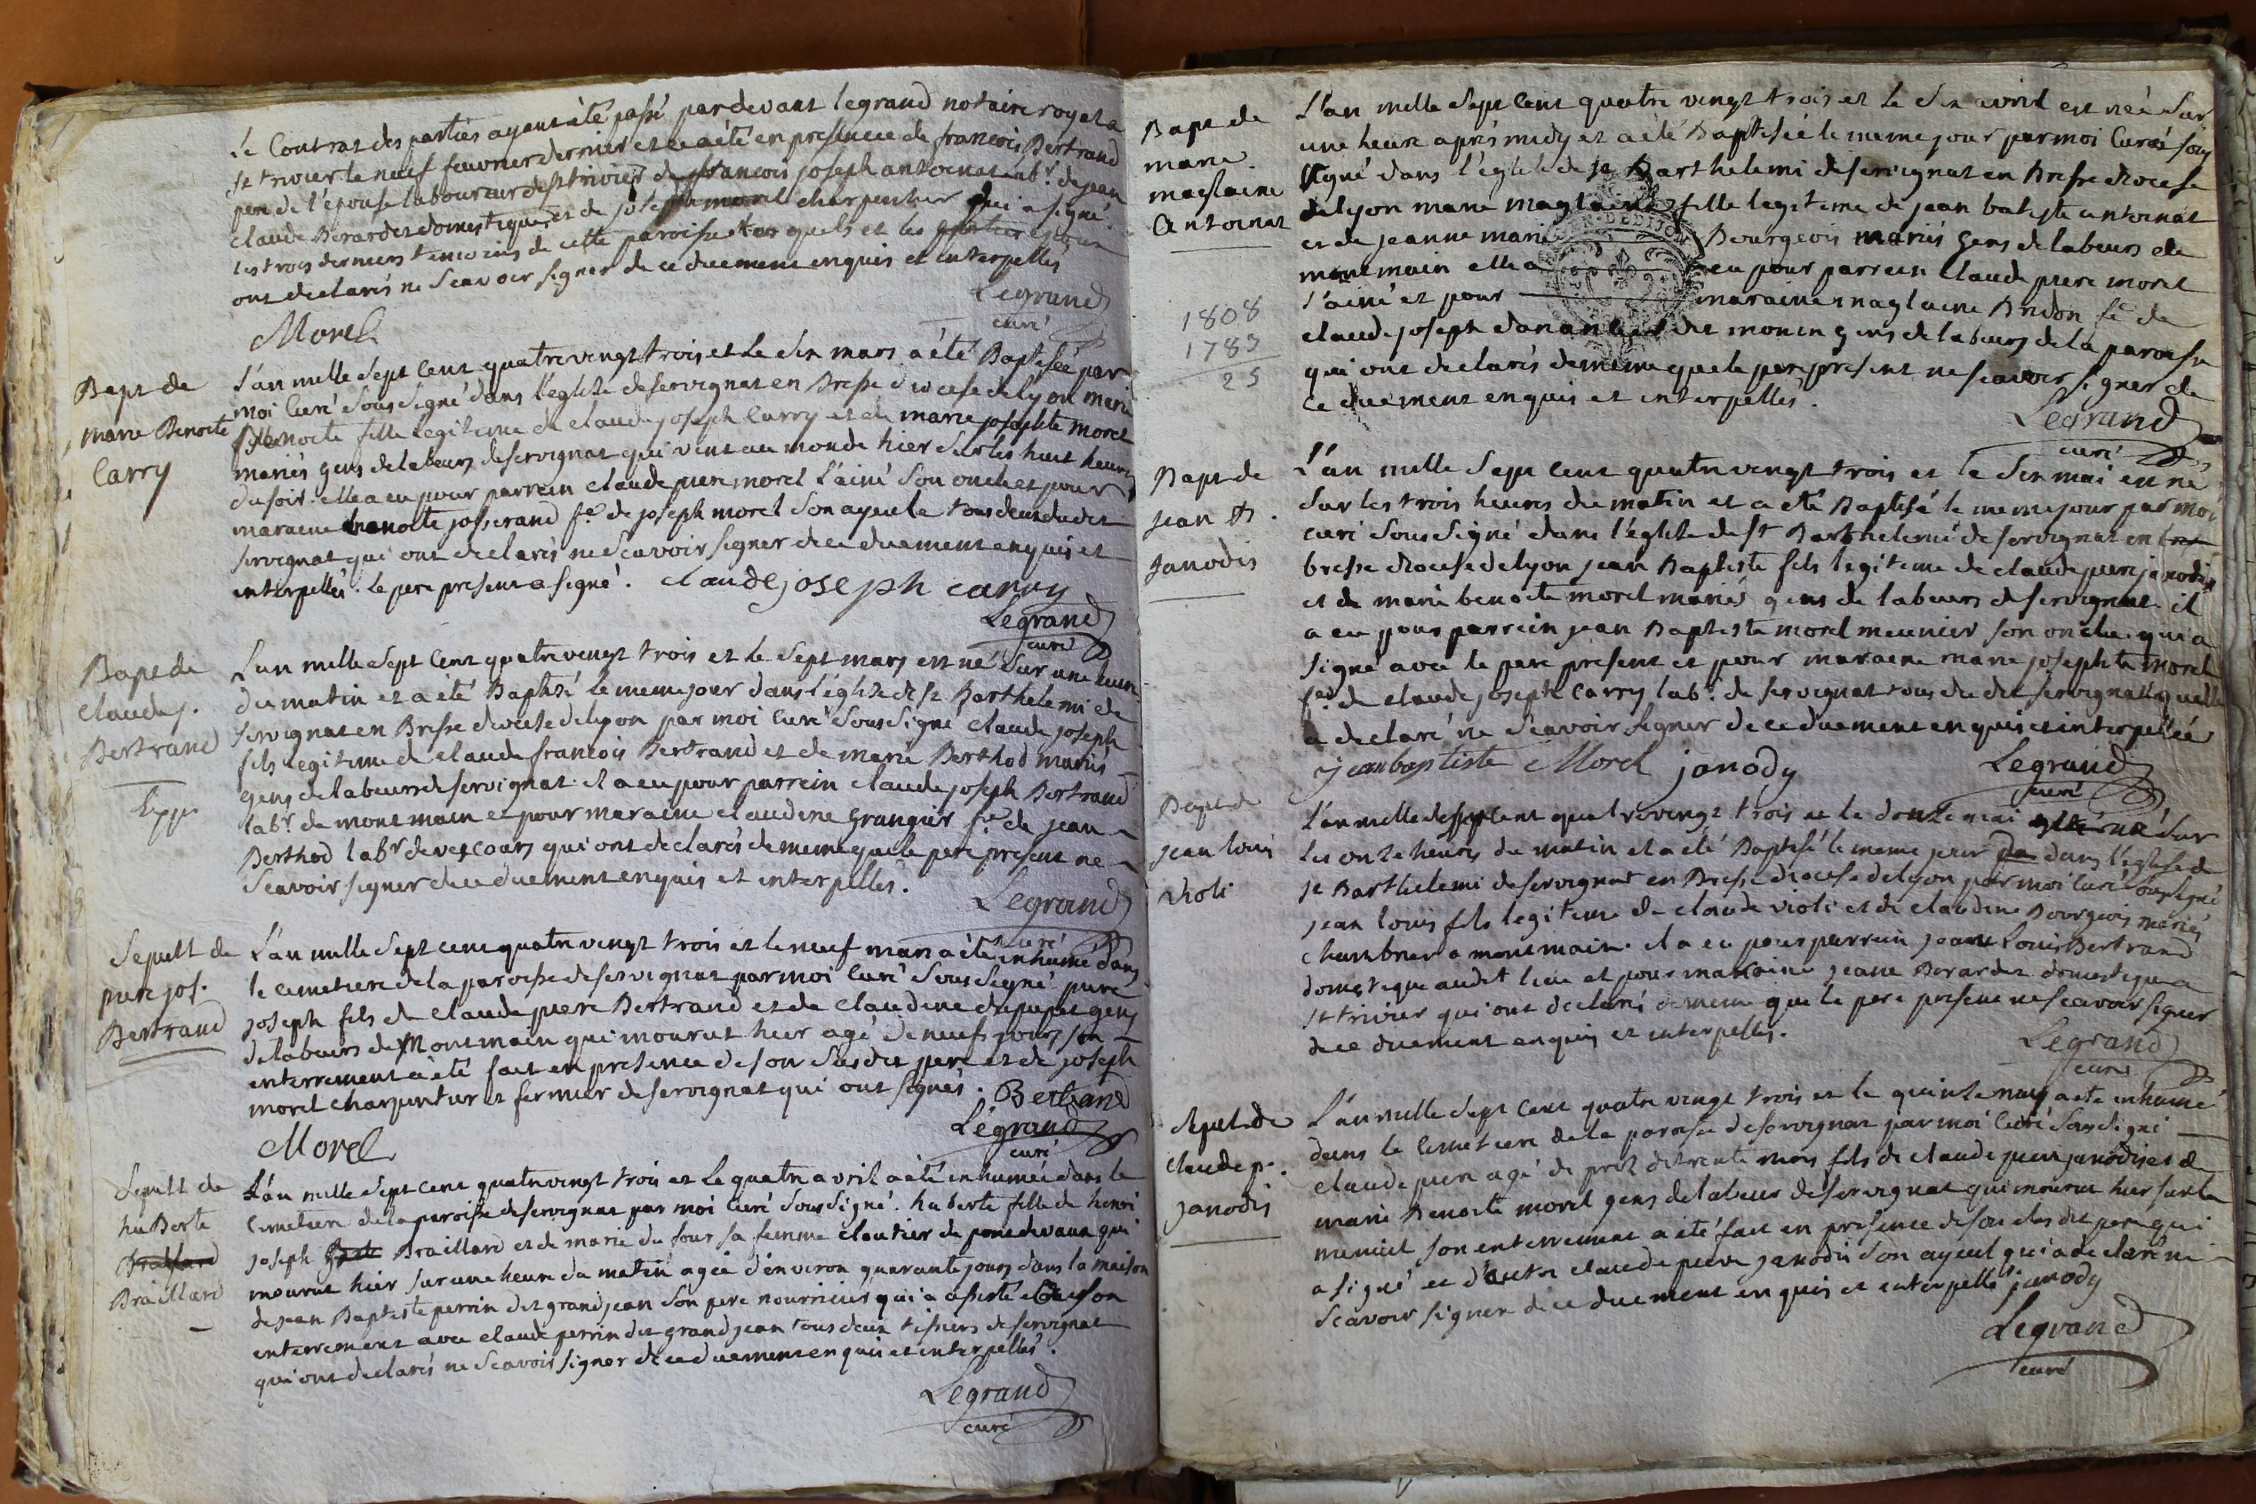 Le Contrat des parties ayant été passé pardevant legrand notaire royal a
st trivier le neuf fevrier dernier et ce a été en presence de francois Bertrand
pere de l'épouse laboureur de st trivier de francois joseph antoinat labr de jean
claude Berardet domestique et de joseph morel charpentier qui a signé
les trois derniers temoins de cette paroisse les quels et les
ont declarés ne scavoir signer de ce duement enquis et interpellés
Legrand
curé
Morel
Bapt de
marie Benoite
Carry
L'an mille sept cent quatre vingt trois et le six mars a été Baptisée par
moi curé sous signé dans l'eglise de servignat en Bresse diocese de lyon marie
Benoite fille legitime de claude joseph Carry et de marie josephte morel
mariés gens de labeurs de servignat qui vint au monde hier sur les huit heures
du soir elle a eu pour parrein claude piere morel l'ainé son oncle et pour
maraine benoite josserand fe de joseph morel son ayeule tous deux du dit
servignat qui ont declarés ne scavoir signer de ce duement enquis et
interpellés. le pere present a signé. claude joseph carry
Legrand
curé
Bapt de
claude j.
Bertrand
L'an mille sept cent quatre vingt trois et le sept mars est né sur une heure
du matin et a été Baptisé le meme jour dans l'église de st Barthelemi de
servignat en Bresse diocese de lyon par moi curé sous signé claude joseph
fils legitime de claude francois Bertrand et de marie Berthod mariés
gens de labeurs de servignat. il a eu pour parrein claude joseph Bertrand
labr de montmain et pour maraine claudine grangier fe de jean
Berthod labr de vescours qui ont declarés de meme que le pere present ne
scavoir signer de ce duement enquis et interpellés.
Legrand
curé
Sepult de
piere jos.
Bertrand
L'an mille sept cent quatre vingt trois et le neuf mars a été inhumé dans
le cimetiere de la paroisse de servignat par moi curé sous signé piere
joseph fils de claude piere Bertrand et de claudine dupupet gens
de labeurs de Montmain qui mourut hier agé de neuf jours son
enterrement a été fait en presence de son susdit pere et de joseph
morel charpentier et fermier de servignat qui ont signés. Bertrand
Legrand
curé
Morel
Sepult de
huberte
Braillard
L'an mille sept cent quatre vingt trois et le quatre avril a été inhumée dans le
cimetiere de la paroisse de servignat par moi curé sous signé. huberte fille de henri
joseph Braillard et de marie du four sa femme cloutier de pontdevaux qui
mourut hier sur une heure du matin agée d'environ quarante jours dans la maison
de jean Baptiste perrin dit grandjean son pere nourricier qui a assisté a son
enterrement avec claude perrin dit grandjean tous deux tissiers de servignat
qui ont declarés ne scavoir signer de ce duement enquis et interpellés.
Legrand
curé
Bapt de
marie
maglaine
Antoinat
1808
1783
25
L'an mille sept cent quatre vingt trois et le six avril est née sur
une heure après midy et a été Baptisée le meme jour par moi curé sous
signé dans l'église de st Barthelemi de servignat en Bresse diocese
de lyon marie maglaine fille legitime de jean batiste antoinat
et de jeanne marie Bourgeois mariés gens de labeurs de
montmain elle a eu pour parrein claude piere morel
l'ainé et pour maraine maglaine Bridon fe de
claude joseph danan dit monin gens de labeurs de la paroisse
qui ont declarés de meme que le pere présent ne scavoir signer de
ce duement enquis et interpellés.
Legrand
curé
Bapt de
jean B.
janodis
L'an mille sept cent quatre vingt trois et le six mai est né
sur les trois heures du matin et a été Baptisé le meme jour par moi
curé sous signé dans l'église de st Barthelemi de servignat en
bresse diocese de lyon jean Baptiste fils legitime de claude piere janodis
et de marie benoite morel mariés gens de labeurs de servignat il
a eu pour parrein jean Baptiste morel meunier son oncle qui a
signé avec le pere présent et pour maraine marie josephte morel
fe de claude joseph Carry labr de servignat tous du dit servignat laquelle
a declaré ne scavoir signer de ce duement enquis et interpellée
jean baptiste Morel janody
Legrand
curé
Bapt de
jean louis
violi
L'an mille sept cent quatre vingt trois et le douze mai est né sur
les onze heures du matin et a été Baptisé le meme jour dans l'église de
st Barthelemi de servignat en Bresse diocese de lyon par moi curé sous signé
jean louis fils legitime de claude violi et de claudine Bourgeois mariés
chambrier a montmain. il a eu pour parrein jean Louis Bertrand
domestique audit lieu et pour maraine jeane Berardet domestique a
st trivier qui ont declaré de meme que le pere present ne scavoir signer
de ce duement enquis et interpellés.
Legrand
curé
Sepult de
claude p.
janodis
L'an mille sept cent quatre vingt trois et le quinze may a été inhumé
dans le cimetiere de la paroisse de servignat par moi curé sous signé
claude piere agé de près de trente mois fils de claude piere janodis et de
marie Benoite morel gens de labeur de servignat qui mourut hier sur la
minuit son enterrement a été fait en presence de son susdit pere qui
a signé et d'autre claude piere janodis son ayeul qui a declaré ne
scavoir signer de ce duement enquis et interpellé janody
Legrand
curé